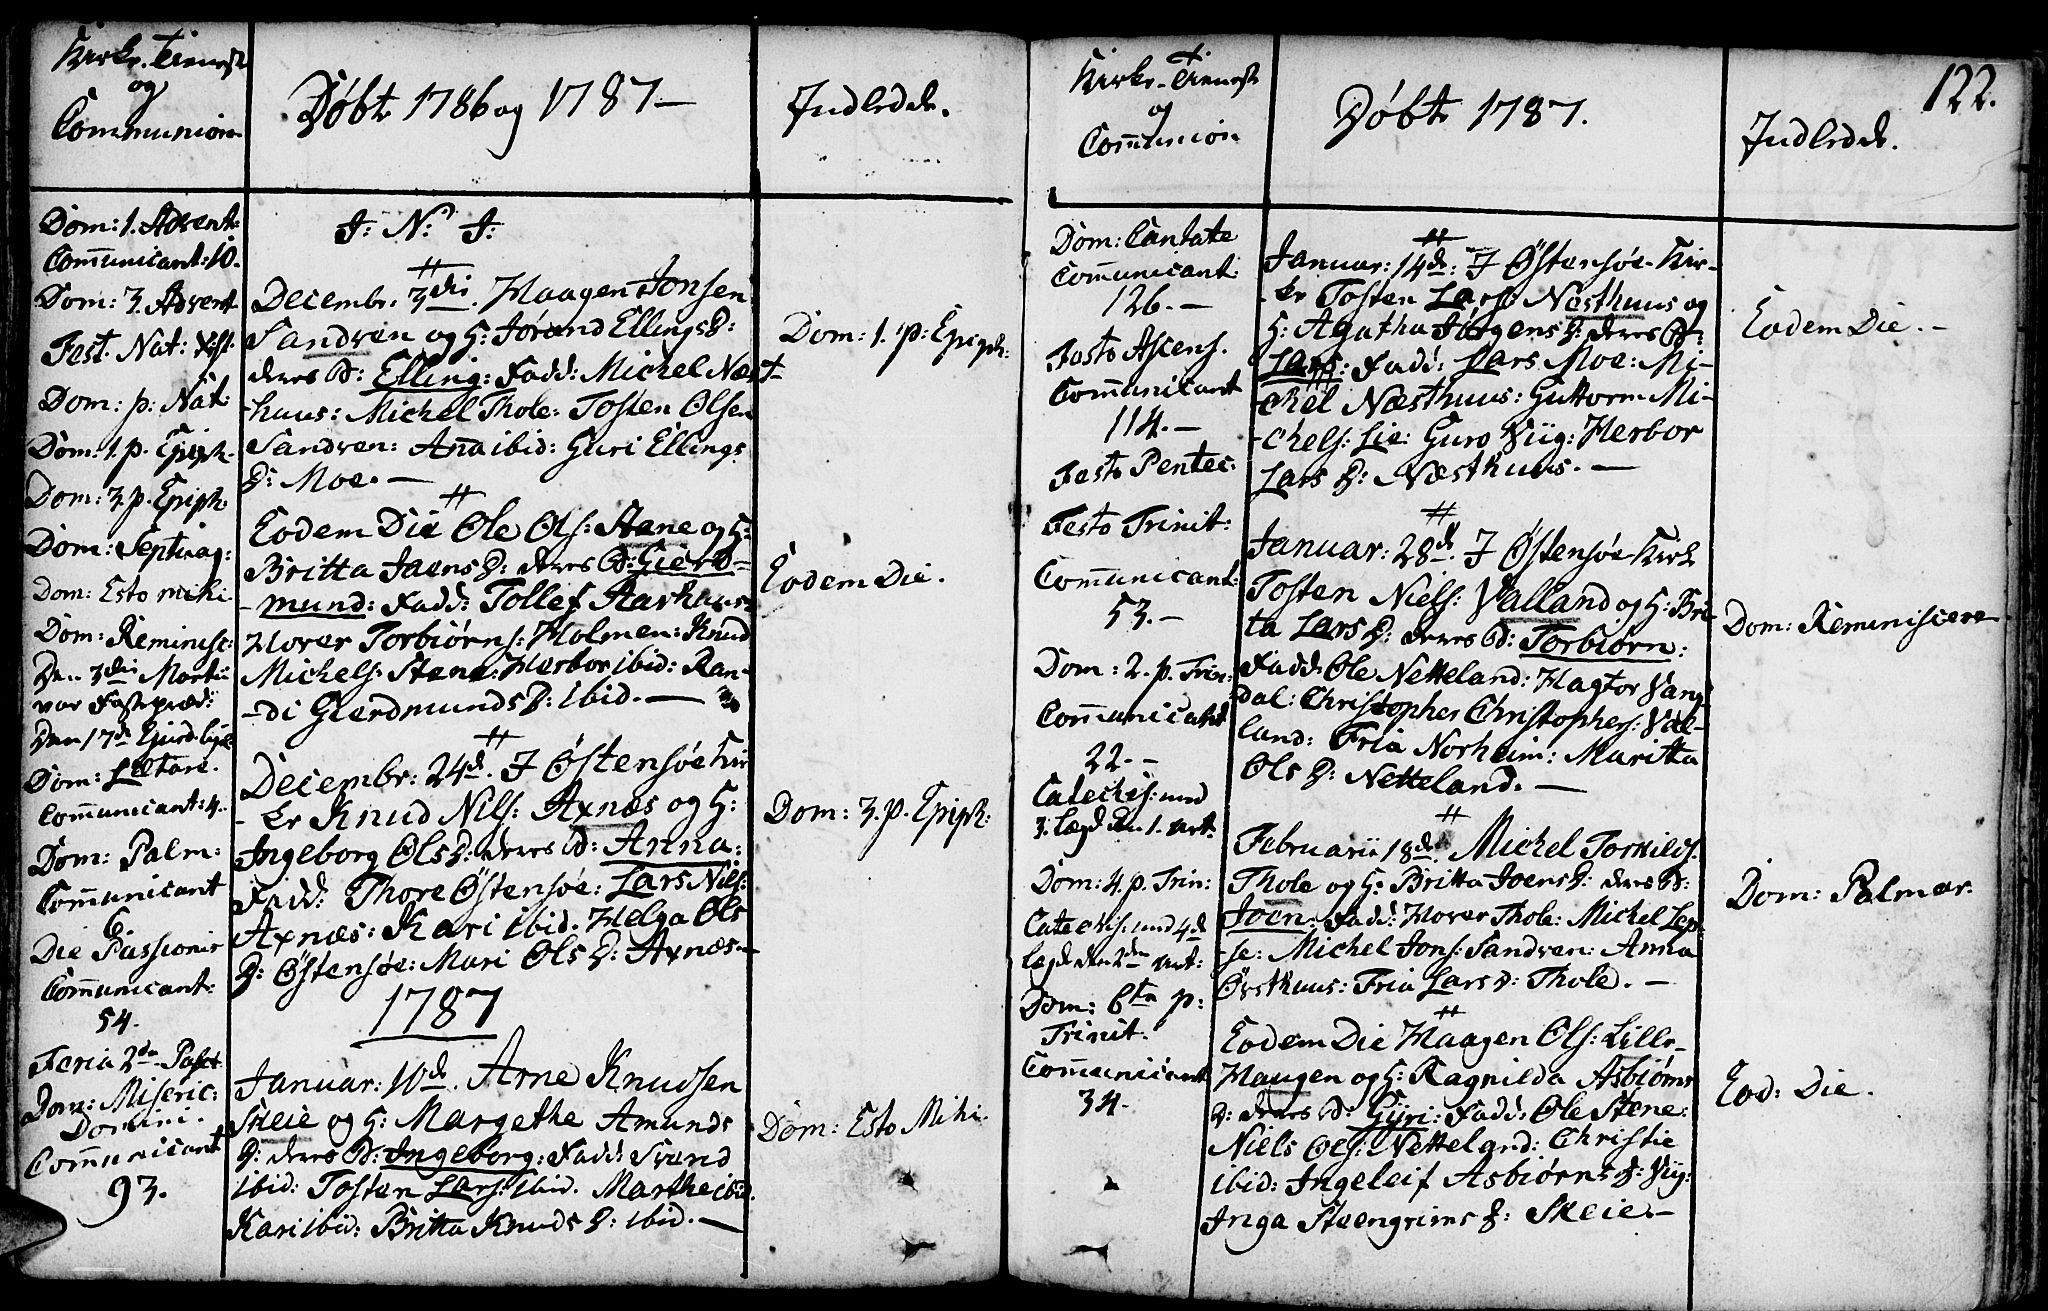 Kirke-Tieneste
og
Communion
Dom: 1. Advent:
Com̄unicant: 10.
Dom: 3. Advent
Fest. Nat: Xsti:
Dom: p: Nat:
Dom: 1. p. Epiph.
Dom: 3. p. Epiph
Dom: Septuag:
Dom: Esto mihi
Dom: Reminisc:
Den 3die Martii
var Fastepræd:
Den 17de
Dom: Lætare.
Com̄unicant: 4.
Dom: Palm:
Com̄unicant
6.
Die Passionis
Com̄unicant:
54.
Feria 2da Pasch
Dom: Miseric:
Domini.
Com̄unicant
93.
Døbte 1786 og 1787-
J: N: J:
Decembr. 3die. Haagen Jonsen
Sandven og H: Jørand Ellings D:
deres B: Elling: Fadd: Michel Næst-
-huus: Michel Thole: Tosten Olsen
Sandven: Ana ibid: Guri Ellings
D: Moe. -
Eodem Die Ole Ols: Stene og H:
Britta Joens D: deres B: Gierd-
-mund: Fadd: Tollef Aarhuus:
Hover Torbiørns: Holmen: Knud
Michels: Stene: Herbor ibid: Ran-
-di Gierdmunds D: ibid. -
Decembr: 24de. I Østensøe Kir
-ke Knud Nils: Axnæs og H:
Ingeborg Ols D: deres B: Anna:
Fadd: Thore Østensøe: Lars Nils:
Axnæs: Kari ibid. Helga Ols
D: Østensøe: Mari Ols D: Axnæs -
1787
Januar: 10de. Arne Knudsen
Skeie og H: Margethe Amunds
D: deres B: Ingeborg: Fadd: Svend
ibid: Tosten Lars: ibid. Marthe ibid.
Kari ibid: Britta Knuds D: ibid. -
Indledde.
Dom: 1. p: Epiph:
Eodem Die.
Dom: 3. p. Epiph:
Dom: Esto Mihi.
Kirke-Tieneste
og
Com̄union
Dom: Cantate
Com̄unicant:
126. -
Festo Ascens.
Com̄unicant
114. -
Festo Pentec:
Festo Trinit:
Com̄unicant:
53. -
Dom: 2. p. Trin:
Com̄unicant
22. -
Catechis: med
3: Lægd den 1. Aet:
Dom: 4. p. Trin:
Catechis: med 4de
Lægd den 2den Aet:
Dom: 6ta p:
Trinit.
Com̄unicant
34.
Døbte 1787.
Januar: 14de: I Østensøe-Kir-
-ke Tosten Lars: Næsthuus og
H: Agatha Jørgens D: deres B:
Lars: Fadd: Lars Moe: Mi-
-chel Næsthuus: Guttorm Mi-
-chels: Lie: Guro Viig: Herbor
Lars D: Næsthuus. -
Januar: 28de. I Østensøe Kirk
Tosten Niels: Valland og H: Bri
ta Lars D: deres B: Torbiørn:
Fadd: Ole Netteland: Hagtor Vang
dal: Christopher Christophers: Val-
land: Fria Norheim: Maritta
Ols D: Netteland. -
Februarii 18de. Michel Torkilds.
Thole og H: Britta Joens D: deres B:
Joen: Fadd: Hover Thole: Michel Lep-
-se: Michel Jons: Sandven: Anna
Øvsthuus: Fria Lars D: Thole. -
Eodem Die Haagen Ols: Lille-
Haugen og H: Ragnilda Asbiørns
D: deres B: Gyri: Fadd: Ole Stene:
Niels Ols: Netteland: Christie
ibid: Ingeleif Asbiørns D: Viig:
Inga Steengrims D: Skeie. -
122.
Indledde.
Eodem Die. -
Dom: Reminiscere
Dom: Palmar.
Eod: Die.